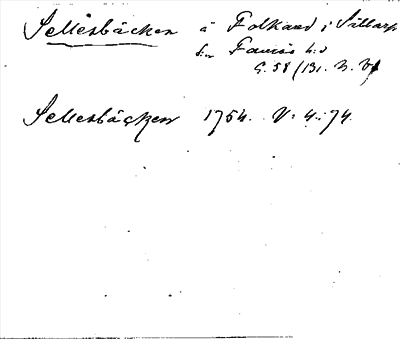 Sellesbäcken å Folkared i Sällarp
sn Faurås hd
G. 58 (131. B. V)
Sellesbäcken 1754. V: 4: 74.